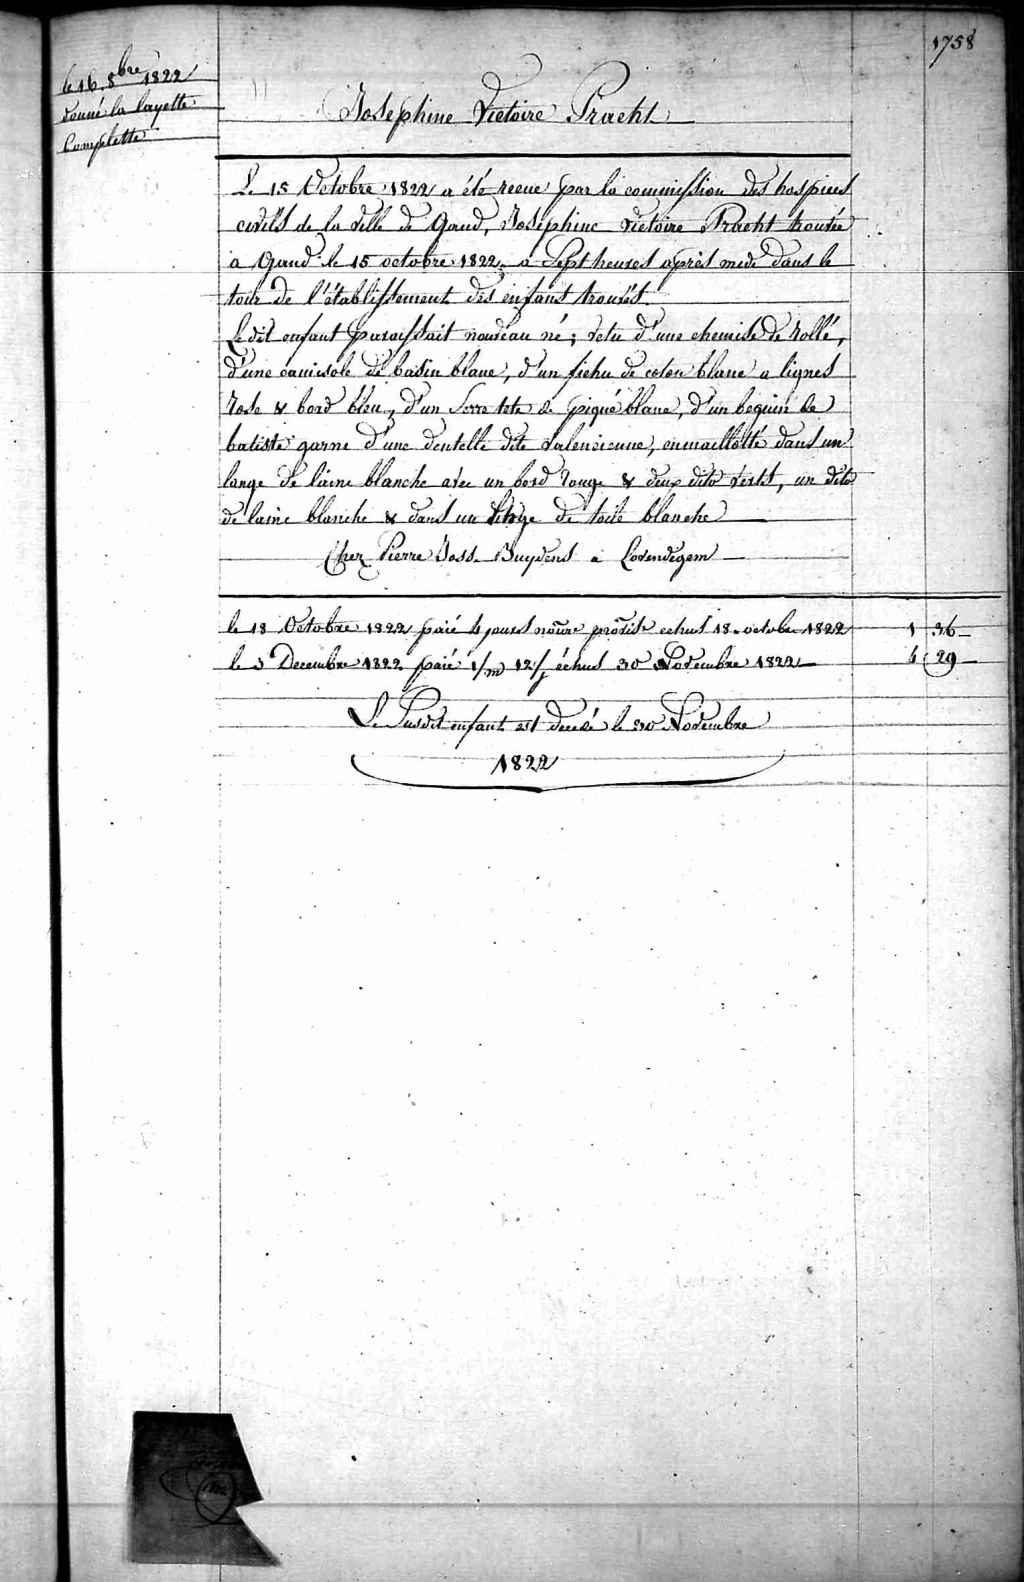 1758
le 16. 8bre 1822
donné la layette
Complette
Josephine Victoire Pracht
Le 15 Octobre 1822 a été recue par la commission des hospices
civils de la ville de Gand, Josephine Victoire Pracht trouvée
a Gand le 15 octobre 1822, a Sept heures après midi dans le
tour de l'établissement des enfans trouvés.
Ledit enfant paraissait nouveau né; vetu d'une chemise de
d'une camisole de basin blanc, d'un fichu de coton blanc a lignes
rose & bord bleu, d'un Serre tete de piqué blanc, d'un beguin de
batiste garne d'une dentelle dite valencienne, enmaillotté dans un
lange de laine blanche avec un bord rouge & deux dito verts, un dito
de laine blanche & dans un de toile blanche
Chez Pierre Joss. Buydens a Lovendegem
le 18 Octobre 1822 paié 4 jours echus 18 octobre 1822 1 36
le 3 Decembre 1822 paié 1/m 12/j échus 30 Novembre 1822 6 29
Le Susdit enfant est decedé le 30 Novembre
1822